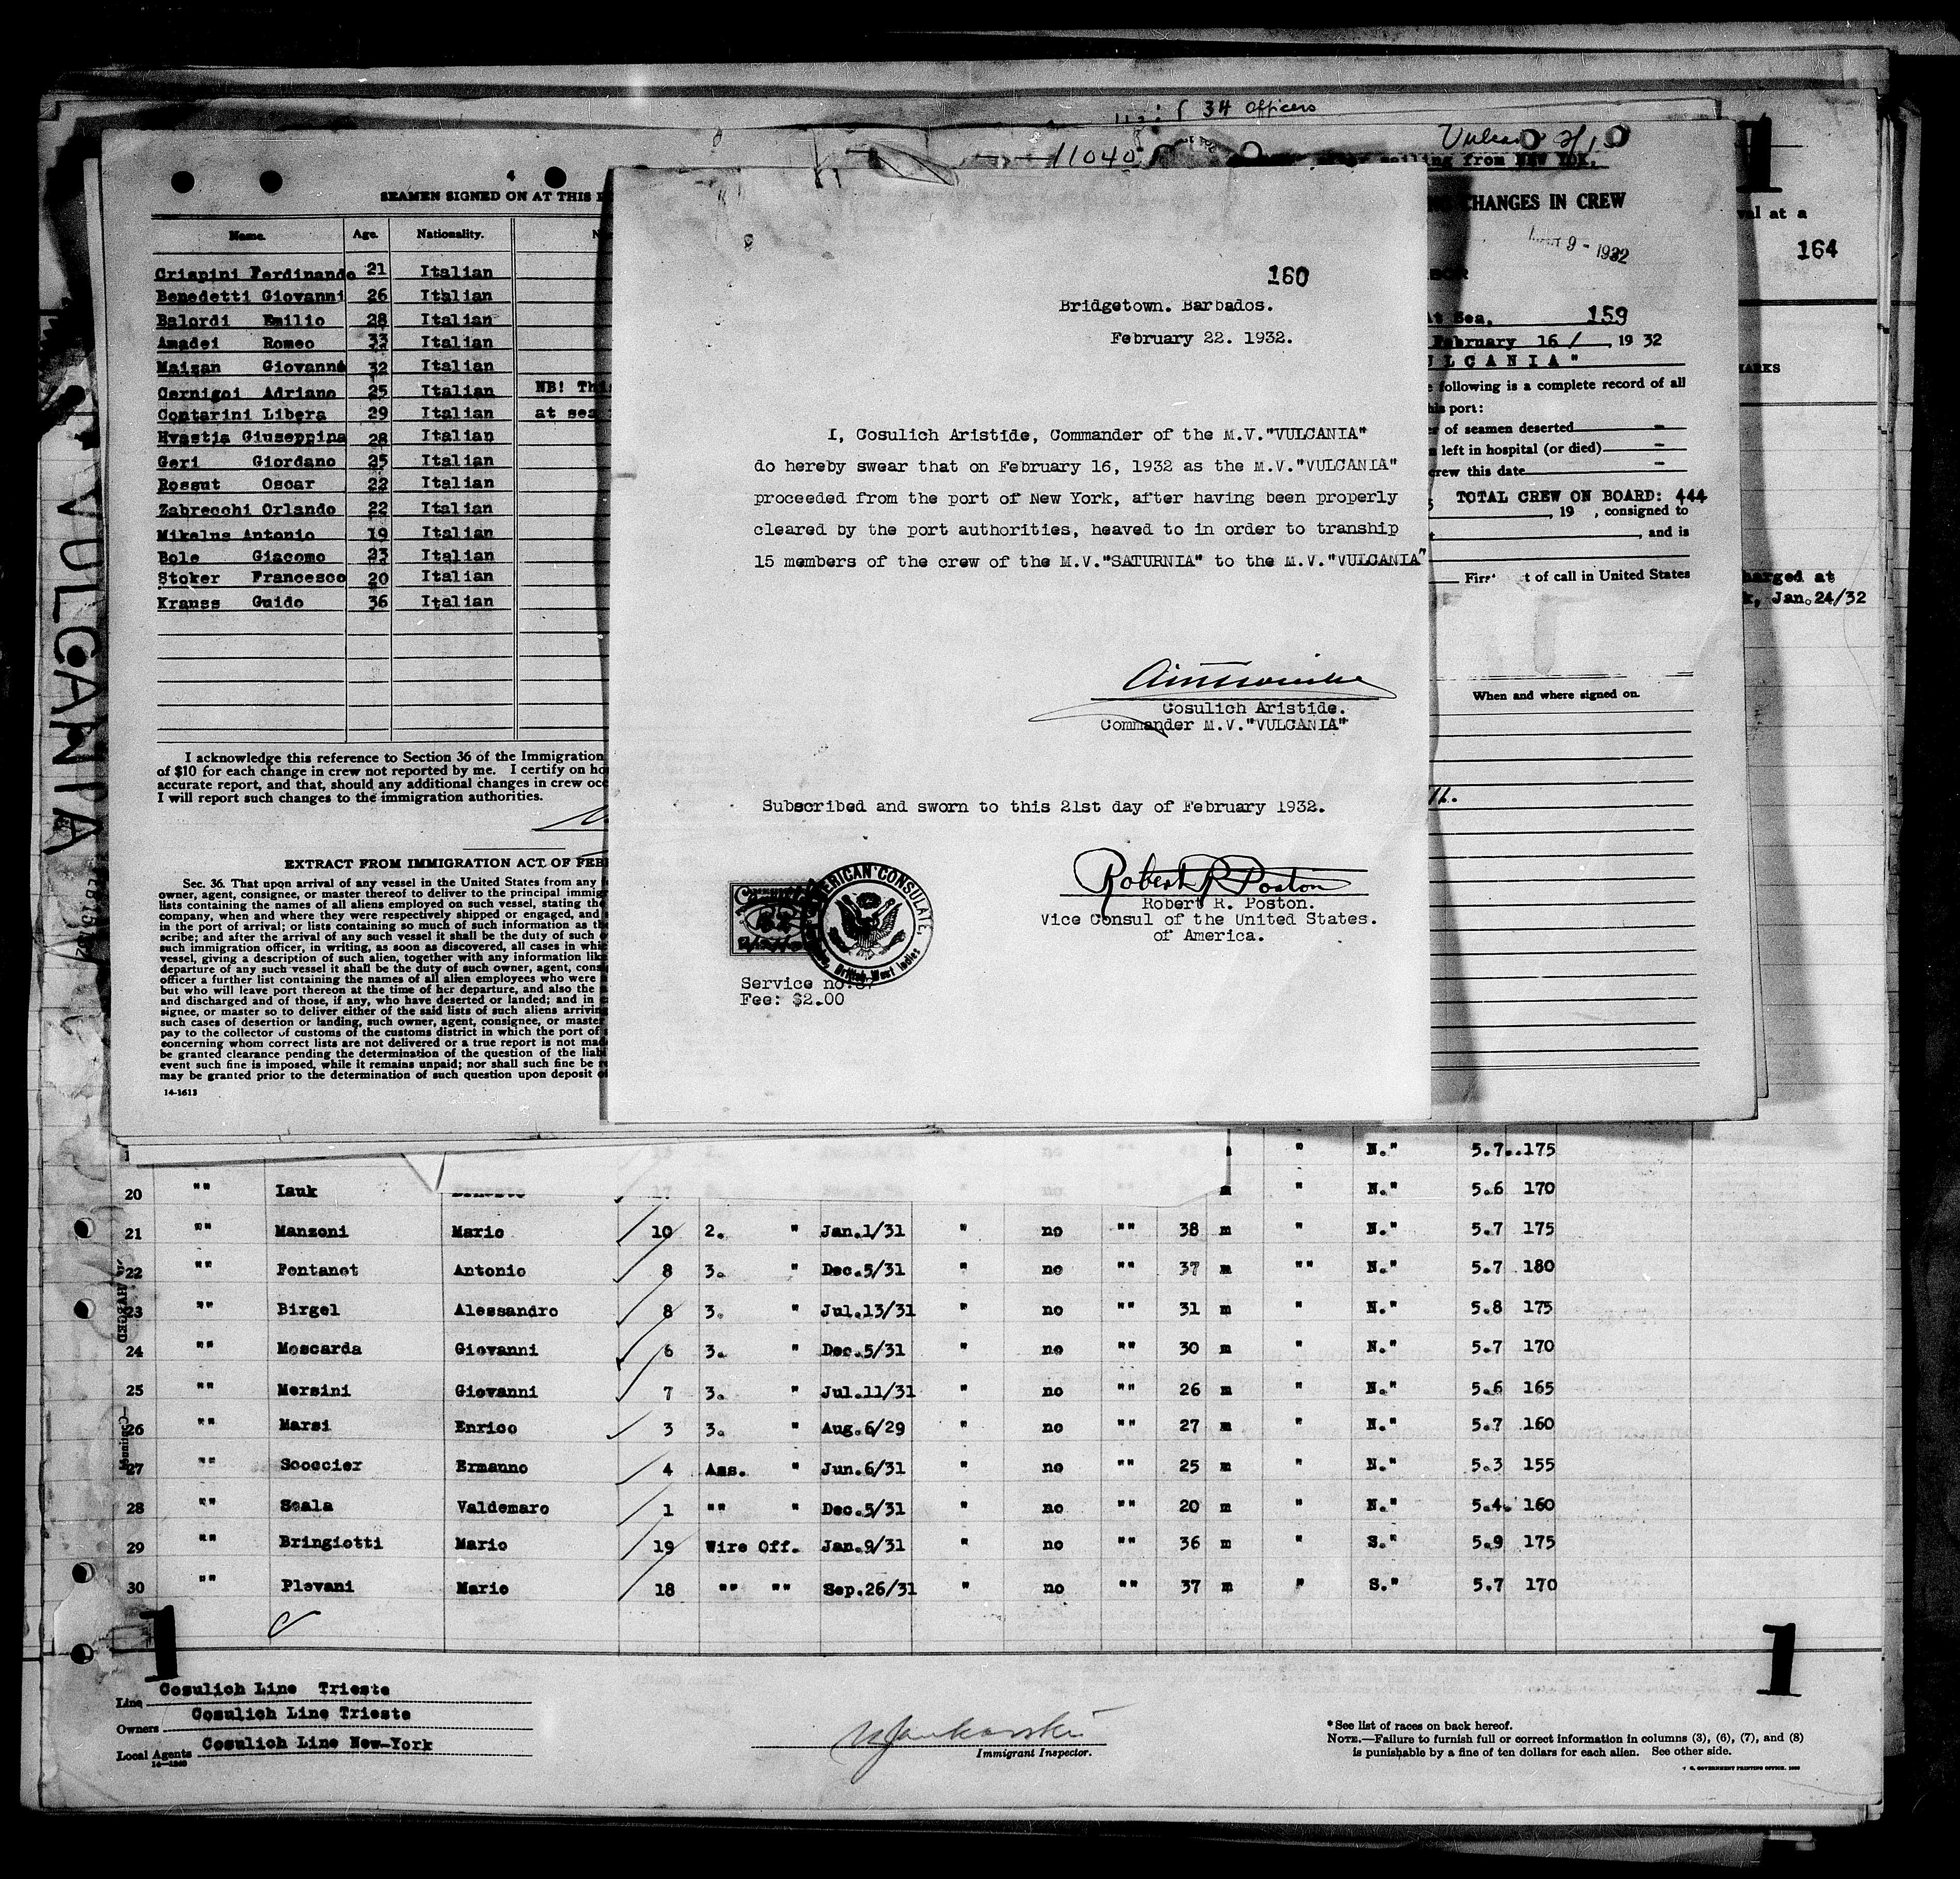 34 Officers
11040
Vulcan
sailing from NEW YORK.
SEAMEN SIGNED ON AT THIS
Name. Age. Nationality.
Crispini Ferdinando 21 Italian
Benedetti Giovanni 26 Italian
Balordi Emilio 28 Italian
Amadei Romeo 33 Italian
Maizan Giovanni 32 Italian
Cernigoi Adriano 25 Italian NB! This
Contarini Libera 29 Italian at sea
Hvastia Giuseppina 28 Italian
Geri Giordano 25 Italian
Rossut Oscar 22 Italian
Zabrecchi Orlando 22 Italian
Mikalus Antonio 19 Italian
Bole Giacomo 23 Italian
Stoker Francesco 20 Italian
Kranss Guido 36 Italian
I acknowledge this reference to Section 36 of the Immigration
of $10 for each change in crew not reported by me. I certify on
accurate report, and that, should any additional changes in crew
I will report such changes to the immigration authorities.
EXTRACT FROM IMMIGRATION ACT OF
Sec. 36. That upon arrival of any vessel in the United States from any
owner, agent, consignee, or master thereof to deliver to the principal
lists containing the names of all aliens employed on such vessel, stating the
company, when and where they were respectively shipped or engaged, and
in the port of arrival; or lists containing so much of such information as
scribe; and after the arrival of any such vessel it shall be the duty of such
such immigration officer, in writing, as soon as discovered, all cases in
vessel, giving a description of such alien, together with any information
departure of any such vessel it shall be the duty of such owner, agent,
officer a further list containing the names of all alien employees who were
but who will leave port thereon at the time of her departure, and also the
and discharged and of those, if any, who have deserted or landed; and in
signee, or master so to deliver either of the said lists of such aliens arriving
such cases of desertion or landing, such owner, agent, consignee, or master
pay to the collector of customs of the customs district in which the port of
concerning whom correct lists are not delivered or a true report is not
be granted clearance pending the determination of the question of the
event such fine is imposed, while it remains unpaid; nor shall such fine be
may be granted prior to the determination of such question upon deposit
14-1613
VULCANIA
160
Bridgetown. Barbados.
February 22. 1932.
I, Cosulich Aristide, Commander of the M.V."VULCANIA"
do hereby swear that on February 16, 1932 as the M.V."VULCANIA"
proceeded from the port of New York, after having been properly
cleared by the port authorities, heaved to in order to tranship
15 members of the crew of the M.V."SATURNIA" to the M.V."VULCANIA"
Cosulich Aristide.
Commander M.V."VULCANIA"
Subscribed and sworn to this 21st day of February 1932.
Robert R Poston
Robert R. Poston.
Vice Consul of the United States.
of America.
AMERICAN CONSULATE,
British West Indies
Service no:
Fee: $2.00
CHANGES IN CREW
9 - 1932
At Sea, 159
February 16/, 19 32
VULCANIA"
following is a complete record of all
this port:
of seamen deserted -
left in hospital (or died) -
crew this date -
TOTAL CREW ON BOARD: 444
, 19 , consigned to
, and is
t of call in United States
When and where signed on.
1
at a
164
charged at
Jan.24/32
" N." 5.7 175
20 "" Iauk m " N." 5.6 170
21 "" Manzoni Mario 10 2. " Jan.1/31 " no "" 38 m " N." 5.7 175
22 "" Fontanot Antonio 8 3. " Dec.5/31 " no "" 37 m "" N." 5.7 180
23 "" Birgel Alessandro 8 3. " Jul.13/31 " no "" 31 m " N." 5.8 175
24 "" Moscarda Giovanni 6 3. " Dec.5/31 " no "" 30 m " N." 5.7 170
25 "" Mersini Giovanni 7 3. " Jul.11/31 " no "" 26 m " N." 5.6 165
26 "" Marsi Enrico 3 3. " Aug.6/29 " no "" 27 m " N." 5.7 160
27 "" Scoccier Ermanno 4 Ass. " Jun.6/31 " no "" 25 m " N." 5.3 155
28 "" Scala Valdemaro 1 "" " Dec.5/31 " no "" 20 m " N." 5.4. 160
29 "" Bringiotti Mario 19 Wire Off. Jan.9/31 " no "" 36 m " S." 5.9 175
30 "" Plevani Mario 18 "" "" Sep.26/31 " no "" 37 m " S." 5.7 170
1
1
Line Cosulich Line Trieste
Owners Cosulich Line Trieste
Local Agents Cosulich Line New-York
Immigrant Inspector.
* See list of races on back hereof.
NOTE.—Failure to furnish full or correct information in columns (3), (6), (7), and (8)
is punishable by a fine of ten dollars for each alien. See other side.